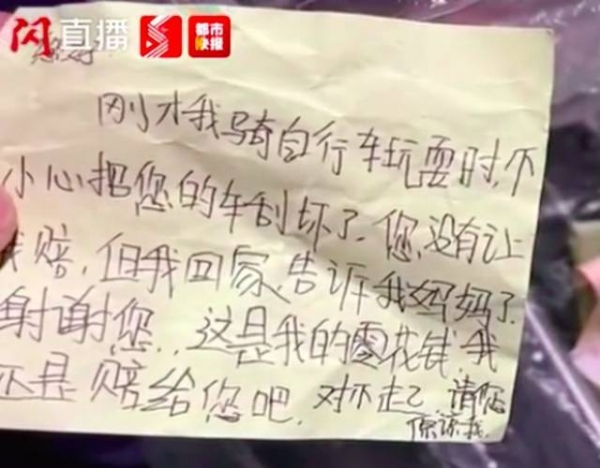 闪直播 都市快报
您好
刚才我骑自行车玩耍时,不
小心把您的车刮坏了.您没有让
我赔,但我回家告诉我妈妈了.
谢谢您..这是我的零花钱.我
还是赔给您吧.对不起 请您
原谅我.